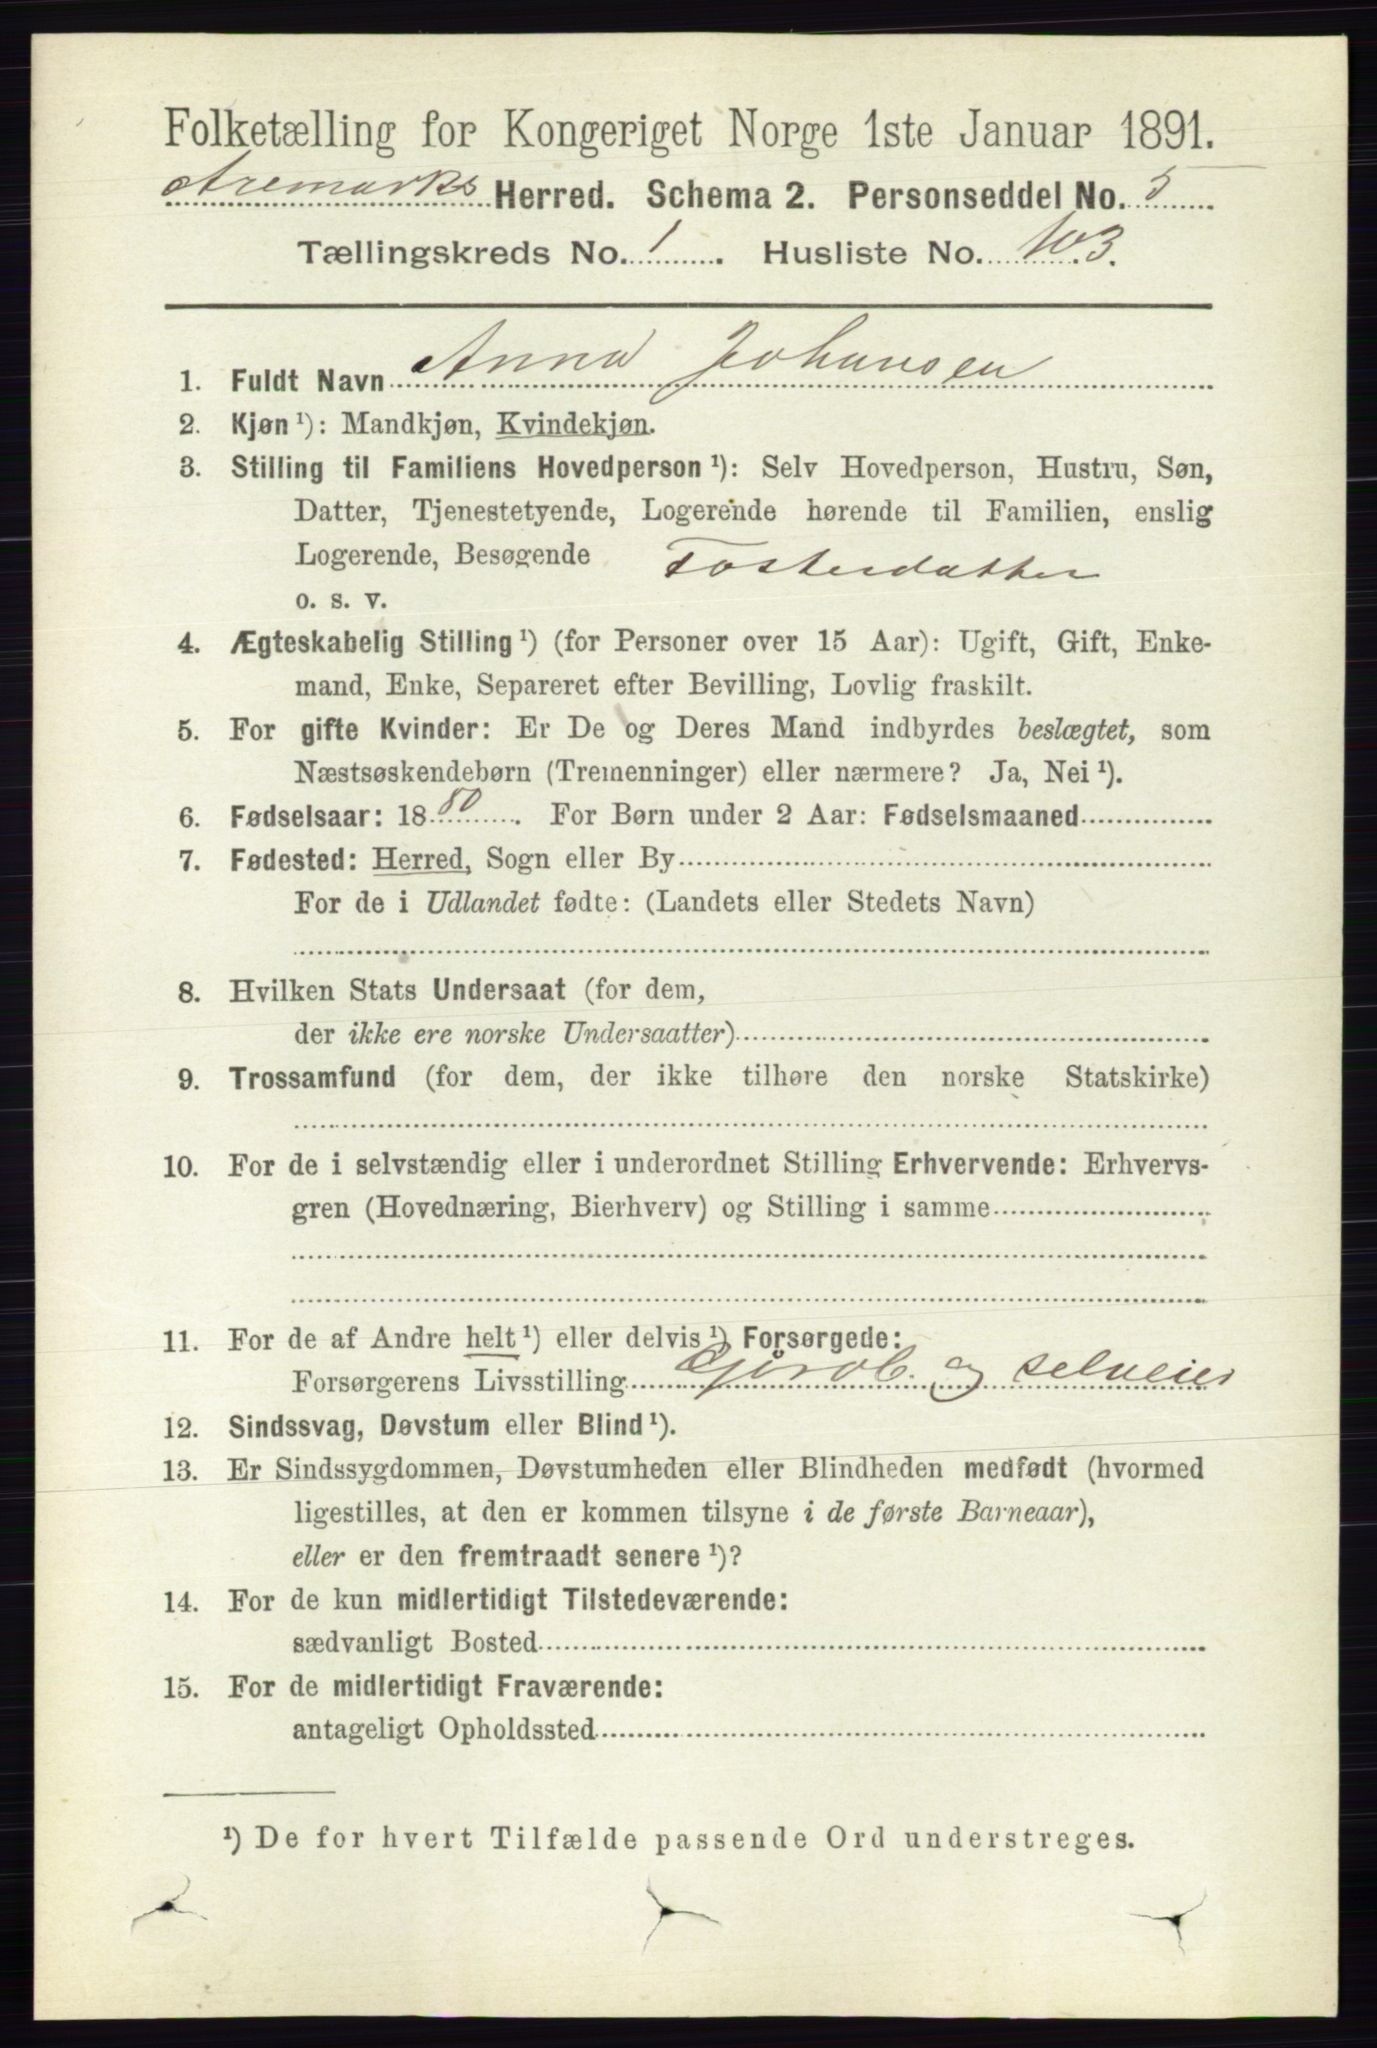 Folketælling for Kongeriget Norge 1ste Januar 1891.
Aremarks Herred. Schema 2. Personseddel No. 5
Tællingskreds No. 1. Husliste No. 103.
1. Fuldt Navn Anna Johansen
2. Kjøn ¹): Mandkjøn, Kvindekjøn.
3. Stilling til Familiens Hovedperson ¹): Selv Hovedperson, Hustru, Søn,
Datter, Tjenestetyende, Logerende hørende til Familien, enslig
Logerende, Besøgende Fosterdatter
o. s. v.
4. Ægteskabelig Stilling ¹) (for Personer over 15 Aar): Ugift, Gift, Enke-
mand, Enke, Separeret efter Bevilling, Lovlig fraskilt.
5. For gifte Kvinder: Er De og Deres Mand indbyrdes beslægtet, som
Næstsøskendebørn (Tremenninger) eller nærmere? Ja, Nei ¹).
6. Fødselsaar: 1880. For Børn under 2 Aar: Fødselsmaaned
7. Fødested: Herred, Sogn eller By
For de i Udlandet fødte: (Landets eller Stedets Navn)
8. Hvilken Stats Undersaat (for dem,
der ikke ere norske Undersaatter)
9. Trossamfund (for dem, der ikke tilhøre den norske Statskirke)
10. For de i selvstændig eller i underordnet Stilling Erhvervende: Erhvervs-
gren (Hovednæring, Bierhverv) og Stilling i samme
11. For de af Andre helt ¹) eller delvis ¹) Forsørgede:
Forsørgerens Livsstilling og selveier
12. Sindssvag, Døvstum eller Blind ¹).
13. Er Sindssygdommen, Døvstumheden eller Blindheden medfødt (hvormed
ligestilles, at den er kommen tilsyne i de første Barneaar),
eller er den fremtraadt senere ¹)?
14. For de kun midlertidigt Tilstedeværende:
sædvanligt Bosted
15. For de midlertidigt Fraværende:
antageligt Opholdssted
¹) De for hvert Tilfælde passende Ord understreges.